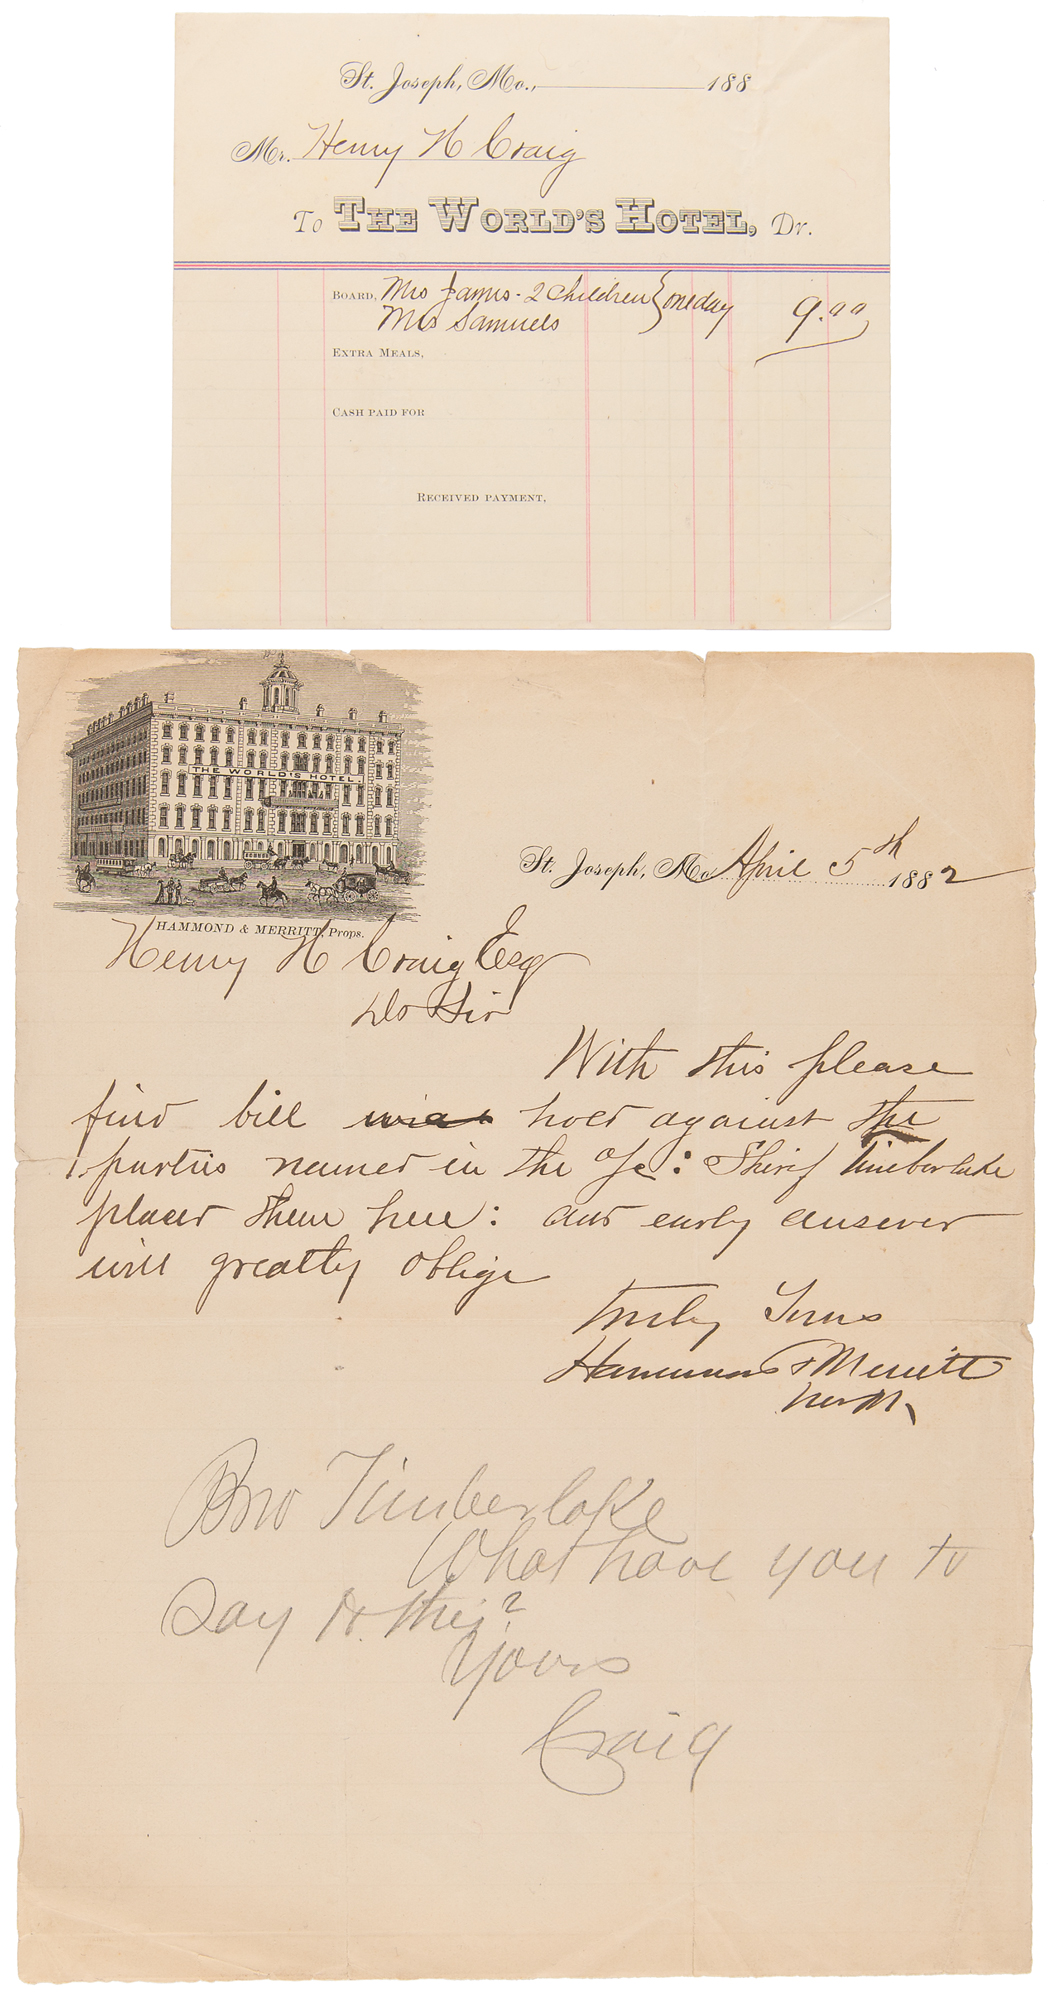 St. Joseph, Mo., 188
Mr. Henry H Craig
To THE WORLD'S HOTEL, Dr.
BOARD, Mrs James - 2 Children } one day 9.00
Mrs Samuels
EXTRA MEALS,
CASH PAID FOR
RECEIVED PAYMENT,
THE WORLD'S HOTEL.
HAMMOND & MERRITT, Props.
St. Joseph, Mo April 5th 1882
Henry H Craig Esq
Sir
With this please
find bill hold against the
parties named in the a/c: Sherif Timberlake
placed them here: and early answer
will greatly oblige
Truly Yours
Hammond & Merritt
Bro Timberlake
What have you to
Say to this?
Yours
Craig